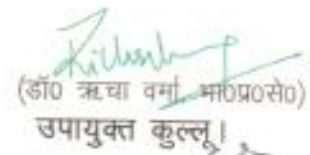 (डॉ0 ऋचा वर्मा, भा0प्र0से0)
उपायुक्त कुल्लू।